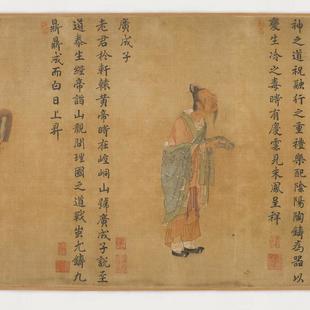 神之道祝融行之重禮樂配陰陽陶鑄為器以
變生冷之毒時有慶雲見來鳳呈祥
廣成子
老君於軒轅黃帝時在崆峒山號廣成子說至
道泰生經帝詣山親問理國之道戰蚩尤鑄九
鼎鼎成而白日上昇